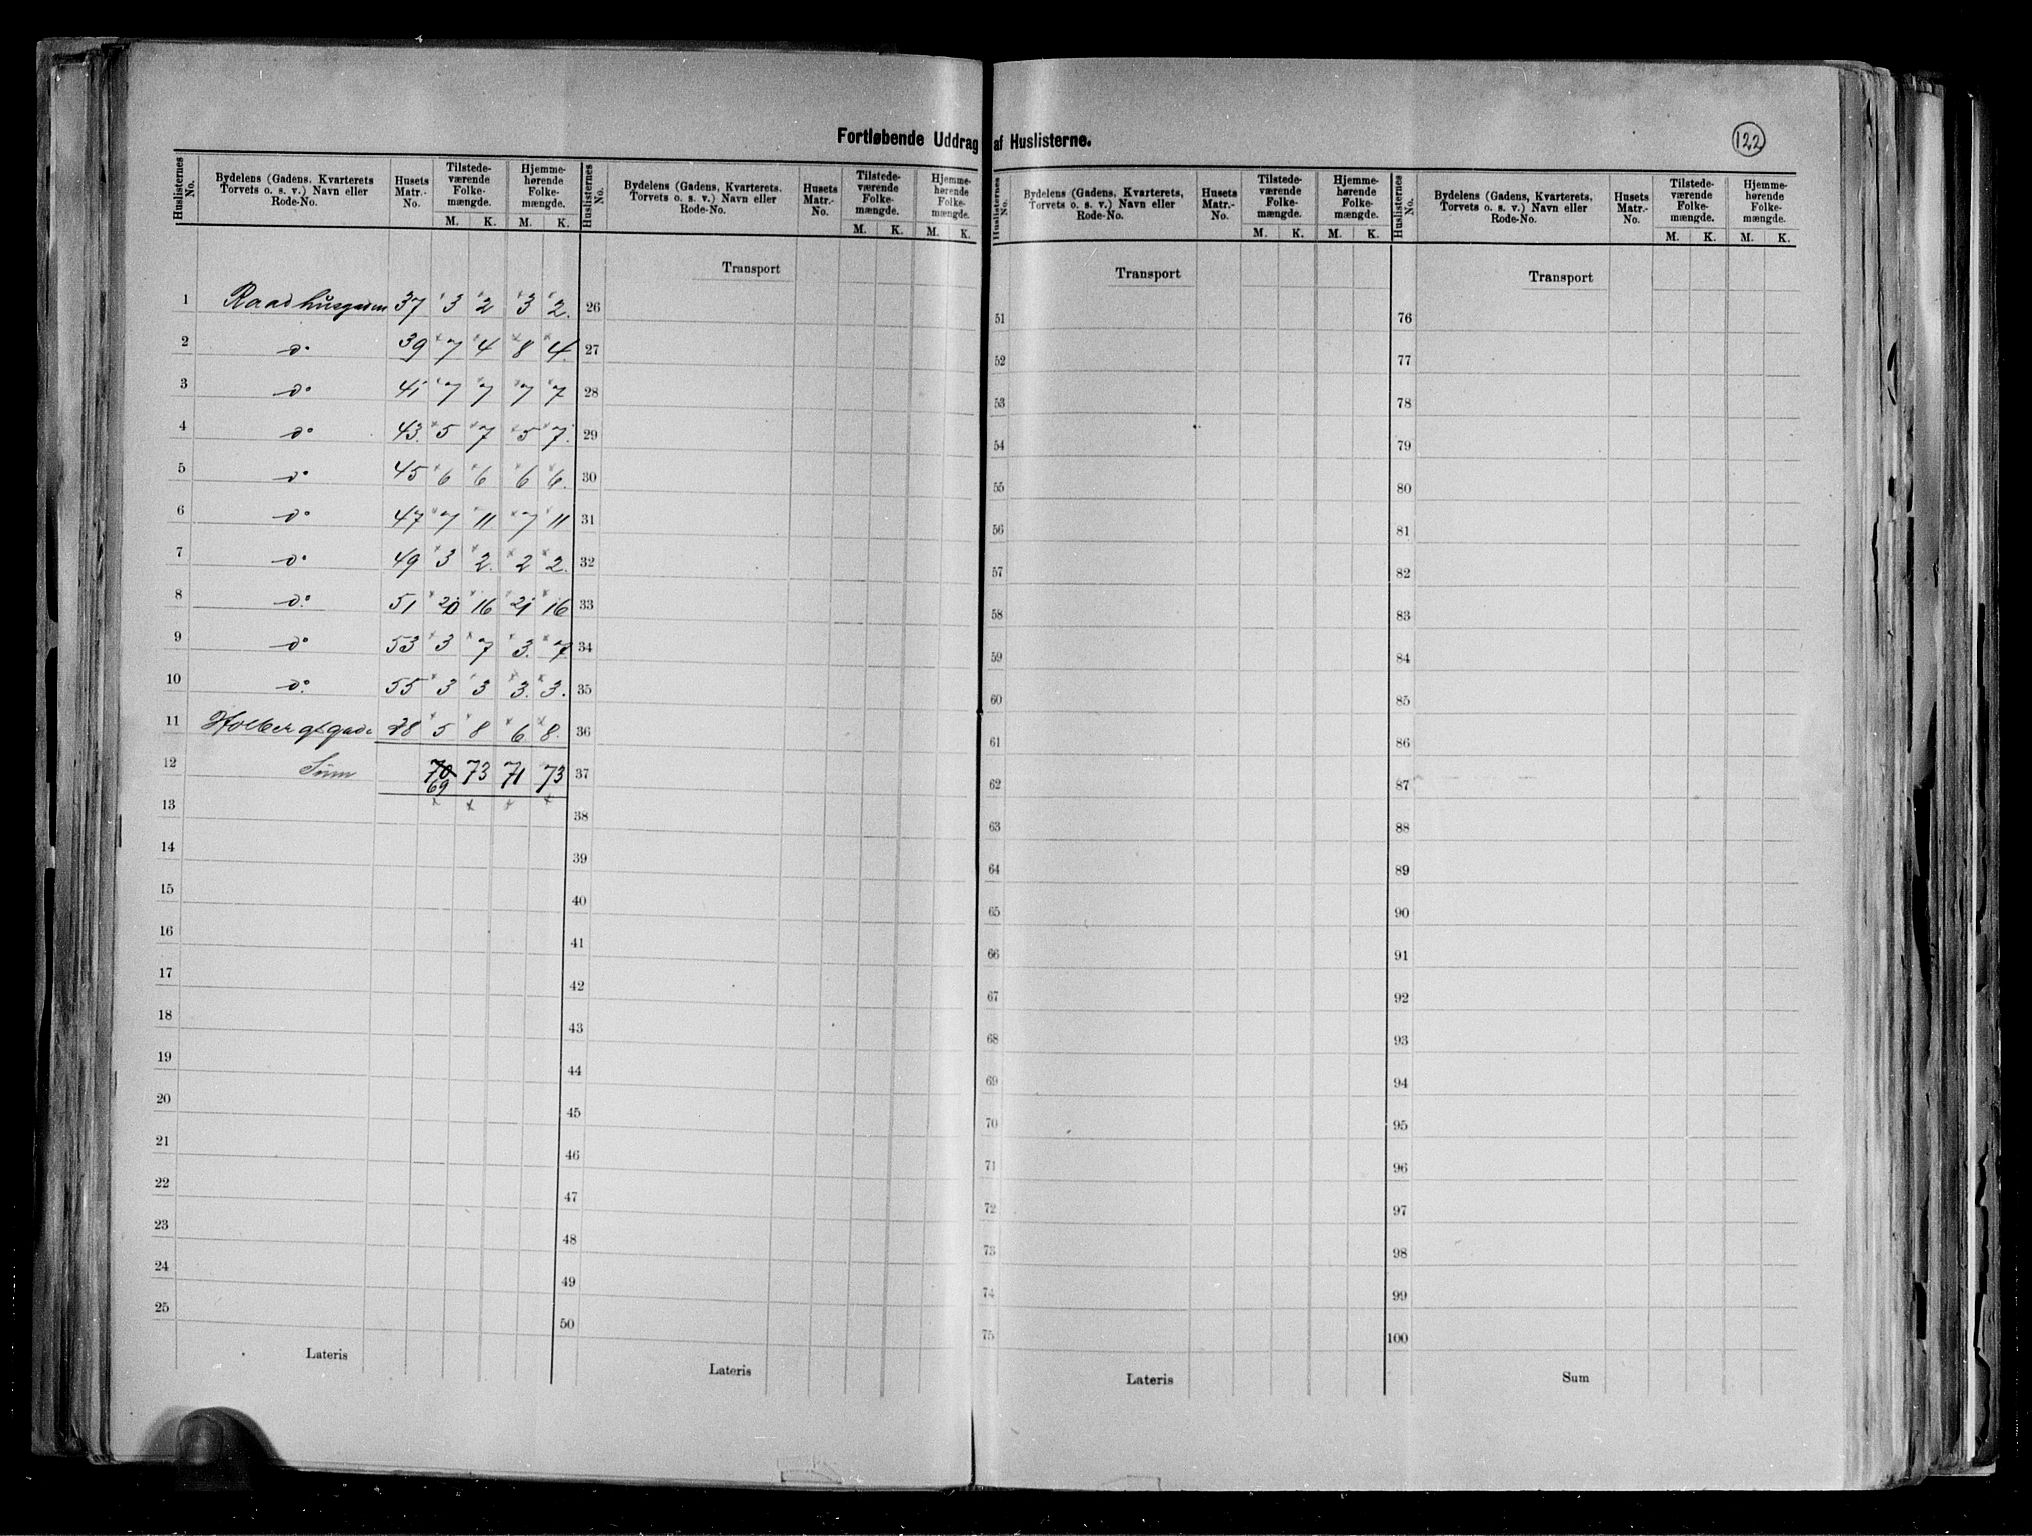 Fortløbende Uddrag af Huslisterne.
122
Huslisternes No. | Bydelens (Gadens, Kvarterets Torvets o. s. v.) Navn eller Rode-No. | Husets Matr.-No. | Tilstede-værende Folke-mængde. M. K. | Hjemme-hørende Folke-mængde. M. K.
Huslisternes No. | Bydelens (Gadens, Kvarterets, Torvets o. s. v.) Navn eller Rode-No. | Husets Matr.-No. | Tilstede-værende Folke-mængde. M. K. | Hjemme-hørende Folke-mængde. M. K.
Huslisternes No. | Bydelens (Gadens, Kvarterets, Torvets o. s. v.) Navn eller Rode-No. | Husets Matr.-No. | Tilstede-værende Folke-mængde. M. K. | Hjemme-hørende Folke-mængde. M. K.
Huslisternes No. | Bydelens (Gadens, Kvarterets, Torvets o. s. v.) Navn eller Rode-No. | Husets Matr.-No. | Tilstede-værende Folke-mængde. M. K. | Hjemme-hørende Folke-mængde. M. K.
1 Raadhusgaden 37 3 2 3 2.
2 do 39 7 4 8 4.
3 do 41 7 7 7 7
4 do 43. 5 7 5 7.
5 do 45 6 6 6 6.
6 do 47 7 11 7 11
7 do 49 3 2. 2 2.
8 do. 51 20 16 21 16
9 do 53 3 7 3. 7
10 do. 55 3 3 3. 3.
11 Holbergsgade 28 5 8 6. 8.
12 Sum 70 73 71 73
69
13
14
15
16
17
18
19
20
21
22
23
24
25
Lateris
Transport
26
27
28
29
30
31
32
33
34
35
36
37
38
39
40
41
42
43
44
45
46
47
48
49
50
Lateris
Transport
51
52
53
54
55
56
57
58
59
60
61
62
63
64
65
66
67
68
69
70
71
72
73
74
75
Lateris
Transport
76
77
78
79
80
81
82
83
84
85
86
87
88
89
90
91
92
93
94
95
96
97
98
99
100
Sum